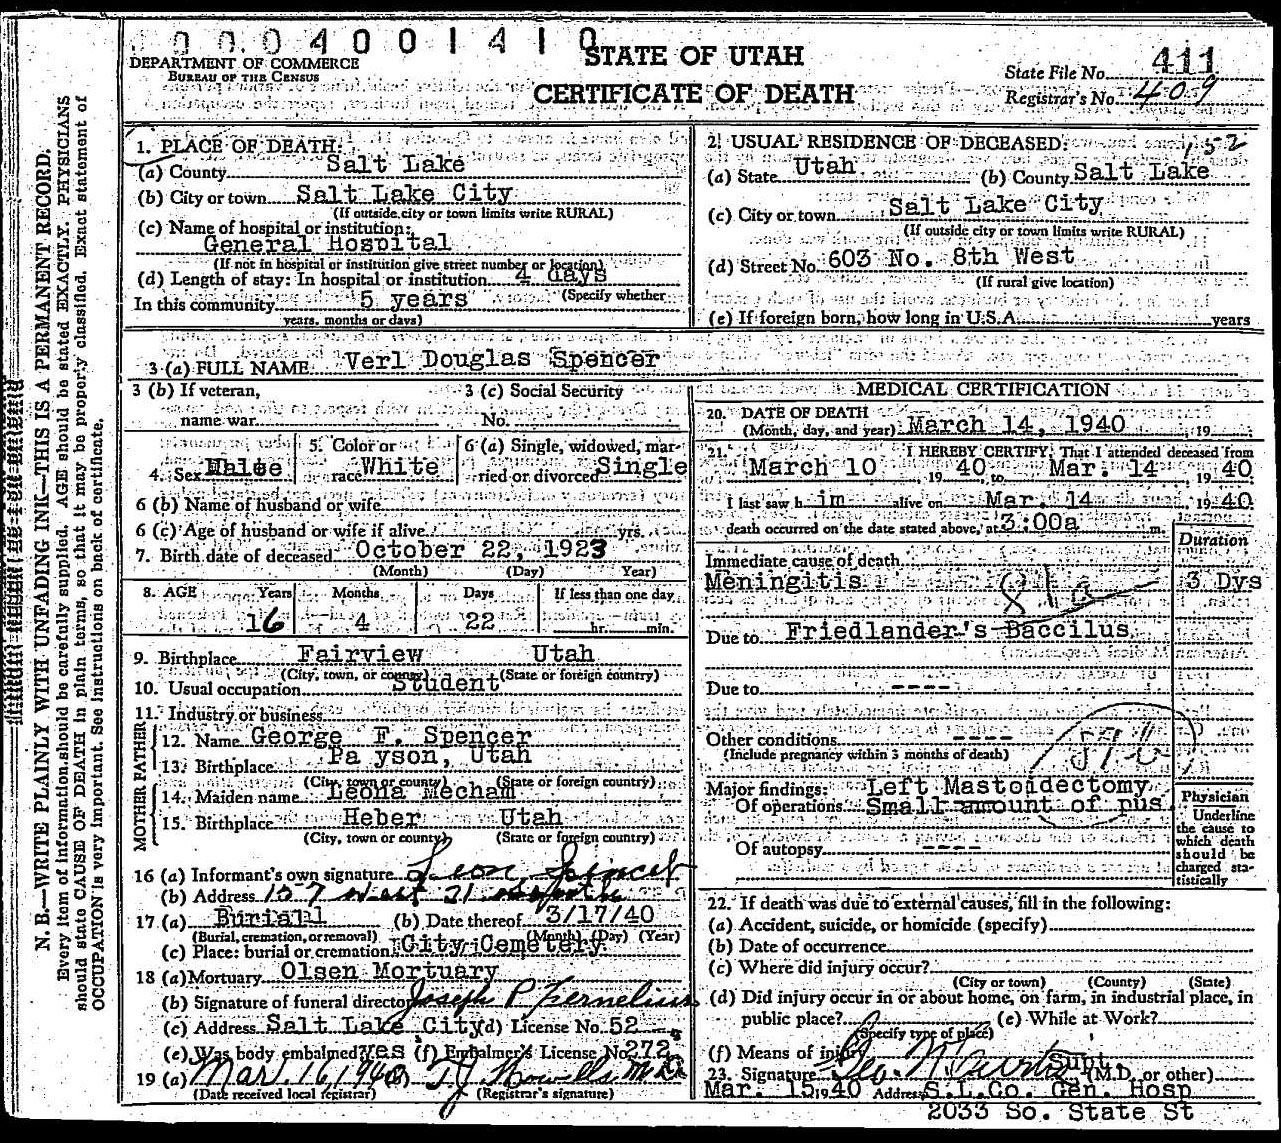 0 0 0 4 0 0 1 4 1 0
STATE OF UTAH
CERTIFICATE OF DEATH
DEPARTMENT OF COMMERCE
BUREAU OF THE CENSUS
State File No. 411
Registrar's No. 409
N. B.—WRITE PLAINLY WITH UNFADING INK—THIS IS A PERMANENT RECORD.
Every item of information should be carefully supplied. AGE should be stated EXACTLY. PHYSICIANS
should state CAUSE OF DEATH in plain terms, so that it may be properly classified. Exact statement of
OCCUPATION is very important. See instructions on back of certificate.
1. PLACE OF DEATH:
(a) County Salt Lake
(b) City or town Salt Lake City
(If outside city or town limits write RURAL)
(c) Name of hospital or institution:
General Hospital
(If not in hospital or institution give street number or location)
(d) Length of stay: In hospital or institution 4 days
In this community 5 years (Specify whether
years, months or days)
2. USUAL RESIDENCE OF DECEASED: 152
(a) State Utah (b) County Salt Lake
(c) City or town Salt Lake City
(If outside city or town limits write RURAL)
(d) Street No. 603 No. 8th West
(If rural give location)
(e) If foreign born, how long in U.S.A. years
3 (a) FULL NAME Verl Douglas Spencer
3 (b) If veteran, name war
3 (c) Social Security No.
4. Sex Male
5. Color or race White
6 (a) Single, widowed, married or divorced Single
6 (b) Name of husband or wife
6 (c) Age of husband or wife if alive yrs.
7. Birth date of deceased October 22, 1923
(Month) (Day) Year)
8. AGE Years Months Days If less than one day
16 4 22 hr. min.
9. Birthplace Fairview Utah
(City, town, or county) (State or foreign country)
10. Usual occupation Student
11. Industry or business
FATHER
12. Name George F. Spencer
13. Birthplace Pa yson, Utah
(City, town or county) (State or foreign country)
MOTHER
14. Maiden name Leona Mecham
15. Birthplace Heber Utah
(City, town or county) (State or foreign country)
16 (a) Informant's own signature Leon Spencer
(b) Address 157 West 21
17 (a) Burial (b) Date thereof 3/17/40
(Burial, cremation, or removal) (Month) (Day) (Year)
(c) Place: burial or cremation City Cemetery
18 (a) Mortuary Olsen Mortuary
(b) Signature of funeral director Joseph P. Kernelius
(c) Address Salt Lake City (d) License No. 52
(e) Was body embalmed? yes (f) Embalmer's License No. 272
19 (a) Mar. 16, 1940 T J Howells M D
(Date received local registrar) (Registrar's signature)
MEDICAL CERTIFICATION
20. DATE OF DEATH
(Month, day, and year) March 14, 1940 , 19
21. I HEREBY CERTIFY, That I attended deceased from
March 10 19 40 to Mar. 14 19 40
I last saw h im alive on Mar. 14 19 40
death occurred on the date stated above, at 3:00a m.
Duration
Immediate cause of death
Meningitis 81a 3 Dys
Due to Friedlander's Baccilus
Due to ----
Other conditions ----
(Include pregnancy within 3 months of death)
Major findings: Left Mastoidectomy
Of operations Small amount of pus
Of autopsy ----
Physician
Underline
the cause to
which death
should be
charged sta-
tistically
22. If death was due to external causes, fill in the following:
(a) Accident, suicide, or homicide (specify)
(b) Date of occurrence
(c) Where did injury occur?
(City or town) (County) (State)
(d) Did injury occur in or about home, on farm, in industrial place, in
public place? (e) While at Work?
(Specify type of place)
(f) Means of injury
23. Signature Geo. N. Curtis Supt. (M.D. or other)
Mar. 15 19 40 Address S.L.Co. Gen. Hosp
2033 So. State St